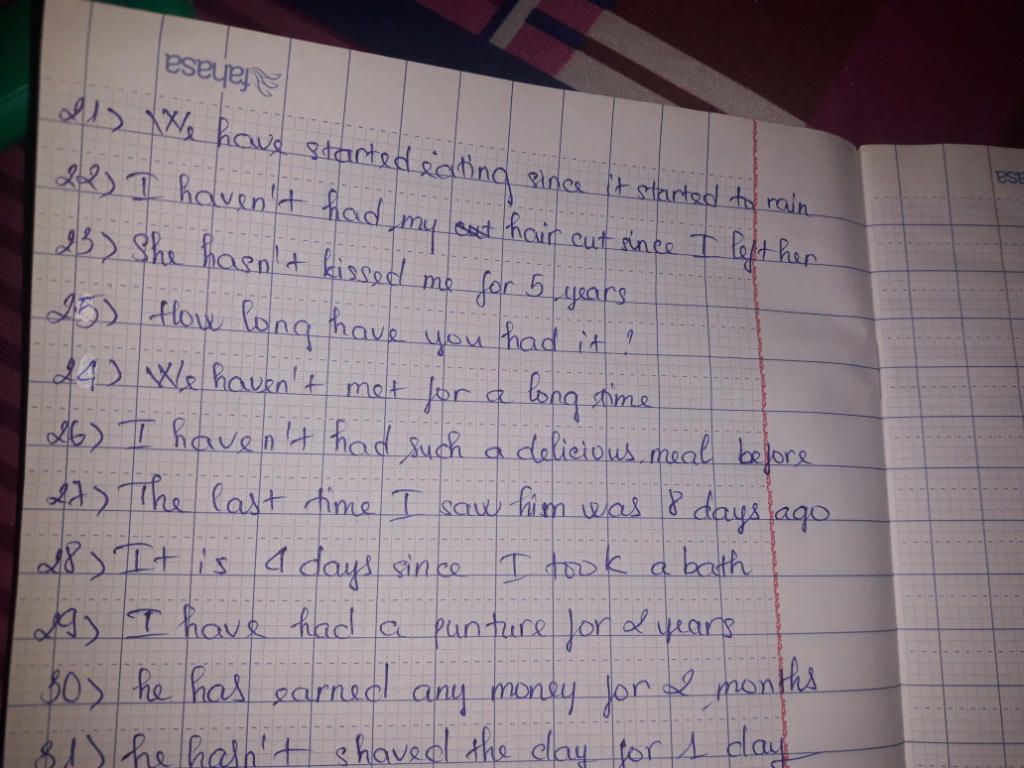 fahasa
21) We have started eating since it started to rain
22) I haven't had my hair cut since I left her
23) She hasn't kissed me for 5 years
25) How long have you had it ?
24) We haven't met for a long time
26) I haven't had such a delicious meal before
27) The last time I saw him was 8 days ago
28) It is 4 days since I took a bath
29) I have had a punture for 2 years
30) he has earned any money for 2 months
31) he hasn't shaved the day for 1 day